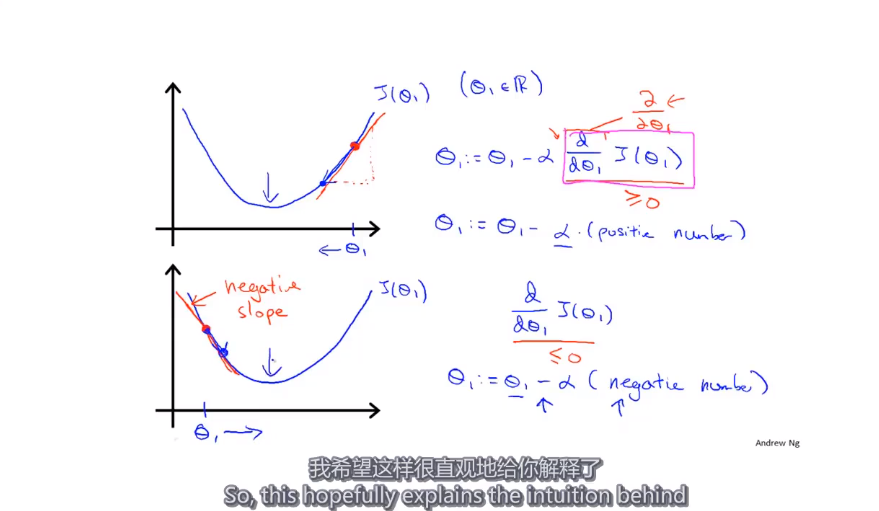 J(θ₁) (θ₁ ∈ ℝ)
∂
∂θ₁
θ₁ := θ₁ - α d/dθ₁ J(θ₁)
≥ 0
θ₁ := θ₁ - α · (positie number)
← θ₁
negative
slope
J(θ₁)
d/dθ₁ J(θ₁)
≤ 0
θ₁ := θ₁ - α (negatie number)
θ₁ →
Andrew Ng
我希望这样很直观地给你解释了
So, this hopefully explains the intuition behind